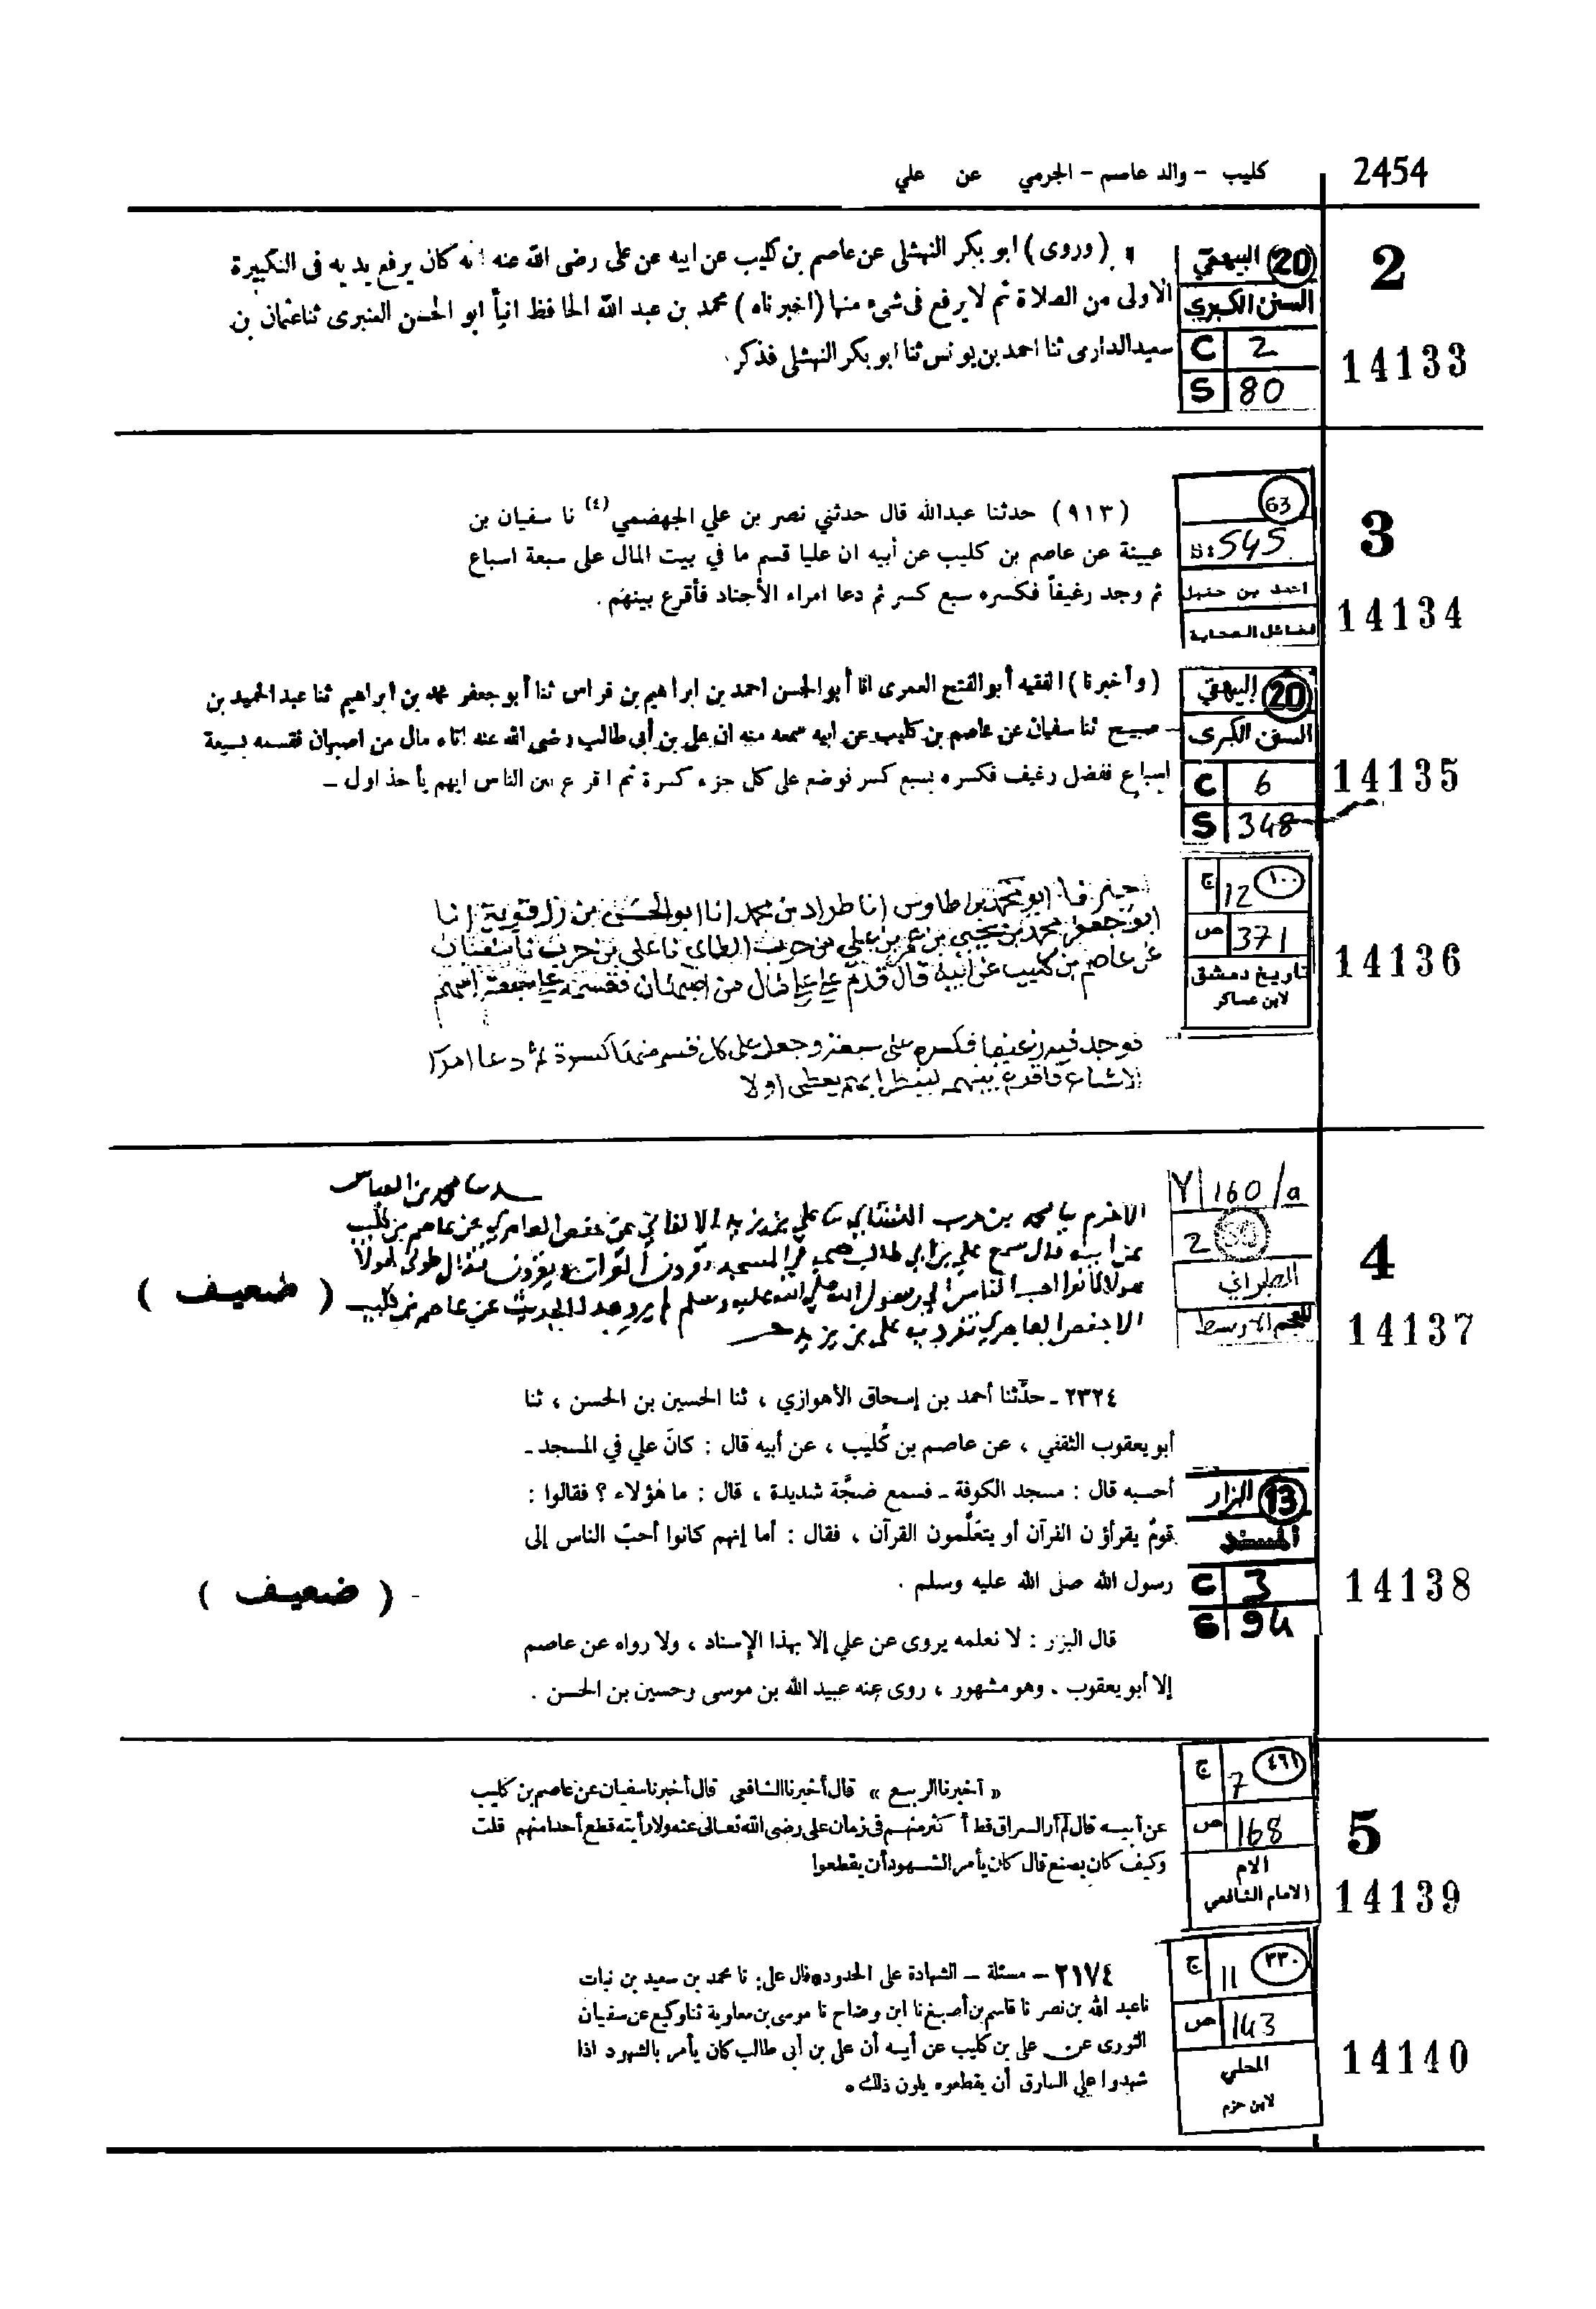 2454
كليب - والد عاصم - الجرمي عن علي
2
14133
20 البيهقي
السنن الكبرى
C 2
S 80
(وروى) ابو بكر النهشلى عن عاصم بن كليب عن ابيه عن على رضى الله عنه انه كان يرفع يديه فى التكبيرة
الاولى من الصلاة ثم لا يرفع فى شىء منها (اخبرناه) محمد بن عبد الله الحافظ انبأ ابو الحسن العنبرى ثنا عثمان بن
سعيد الدارمى ثنا احمد بن يونس ثنا ابو بكر النهشلى فذكر
3
14134
63
S: 545
احمد بن حنبل
فضائل الصحابة
(٩١٣) حدثنا عبدالله قال حدثني نصر بن علي الجهضمي (٤) نا سفيان بن
عيينة عن عاصم بن كليب عن أبيه ان عليا قسم ما في بيت المال على سبعة اسباع
ثم وجد رغيفاً فكسره سبع كسر ثم دعا امراء الأجناد فأقرع بينهم .
14135
20 البيهقي
السنن الكبرى
C 6
S 348
(وأخبرنا) الفقيه أبو الفتح العمرى انا أبو الحسن احمد بن ابراهيم بن فراس ثنا أبو جعفر محمد بن ابراهيم ثنا عبد الحميد بن
صبيح ثنا سفيان عن عاصم بن كليب عن ابيه سمعه منه ان على بن أبى طالب رضى الله عنه اتاه مال من اصبهان فقسمه بسبعة
اسباع ففضل رغيف فكسره بسبع كسر فوضع على كل جزء كسرة ثم اقرع بين الناس ايهم يأخذ اول -
14136
١٠٠
ج 12
ص 371
تاريخ دمشق
لابن عساكر
ابو محمد بن طاوس انا طراد بن محمد انا ابو الحسن بن زرقوية انا
ابو جعفر محمد بن يحيى بن عمر بن علي بن حرب الطائي نا علي بن حرب نا سفيان
عن عاصم بن كليب عن ابيه قال قدم على علي مال من اصبهان فقسمه على سبعة اسهم
فوجد فيه رغيفا فكسره على سبعة وجعل على كل قسم منها كسرة ثم دعا امرا
الاسباع فاقرع بينهم لينظر ايهم يعطى اولا
4
14137
160/a
2
الطبراني
المعجم الاوسط
حدثنا محمد بن العباس
الاخرم نا محمد بن حرب النشائي نا علي بن يزيد عن حفص العامري عن عاصم بن كليب
عن ابيه قال سمع علي بن ابي طالب في المسجد يقرؤن القرآن فقال طوبى لهولا
هولا كانوا احب الناس الى رسول الله صلى الله عليه وسلم لم يرو هذا الحديث عن عاصم بن كليب
الا حفص العامري تفرد به علي بن يزيد
( ضعيف )
14138
13 البزار
المسند
C 3
S 94
٢٣٢٤ ـ حدّثنا أحمد بن إسحاق الأهوازي ، ثنا الحسين بن الحسن ، ثنا
أبو يعقوب الثقفي ، عن عاصم بن كُليب ، عن أبيه قال : كانَ علي في المسجد ـ
أحسبه قال : مسجد الكوفة ـ فسمع ضجَّة شديدة ، قال : ما هٰؤلاء ؟ فقالوا :
قومٌ يقرأون القرآن أو يتعلَّمون القرآن ، فقال : أما إنهم كانوا أحبّ الناس إلى
رسول الله صلى الله عليه وسلم .
( ضعيف )
قال البزر : لا نعلمه يروى عن علي إلا بهذا الإسناد ، ولا رواه عن عاصم
إلا أبو يعقوب . وهو مشهور ، روى عنه عبيد الله بن موسى وحسين بن الحسن .
5
14139
٤٩١
ج 7
ص 168
الام
الامام الشافعي
« أخبرنا الربيع » قال أخبرنا الشافعى قال أخبرنا سفيان عن عاصم بن كليب
عن أبيه قال لم أر السراق قط أكثر منهم فى زمان على رضى الله تعالى عنه ولا رأيته قطع أحدا منهم قلت
وكيف كان يصنع قال كان يأمر الشهود أن يقطعوا
14140
٣٣٠
ج 11
ص 143
المحلي
لابن حزم
٢١٧٤ ـ مسئلة ـ الشهادة على الحدود • قال على: نا محمد بن سعيد بن نبات
نا عبد الله بن نصر نا قاسم بن أصبغ نا ابن وضاح نا موسى بن معاوية ثنا وكيع عن سفيان
الثورى عن على بن كليب عن أبيه أن على بن أبى طالب كان يأمر بالشهود اذا
شهدوا على السارق أن يقطعوه يلون ذلك •